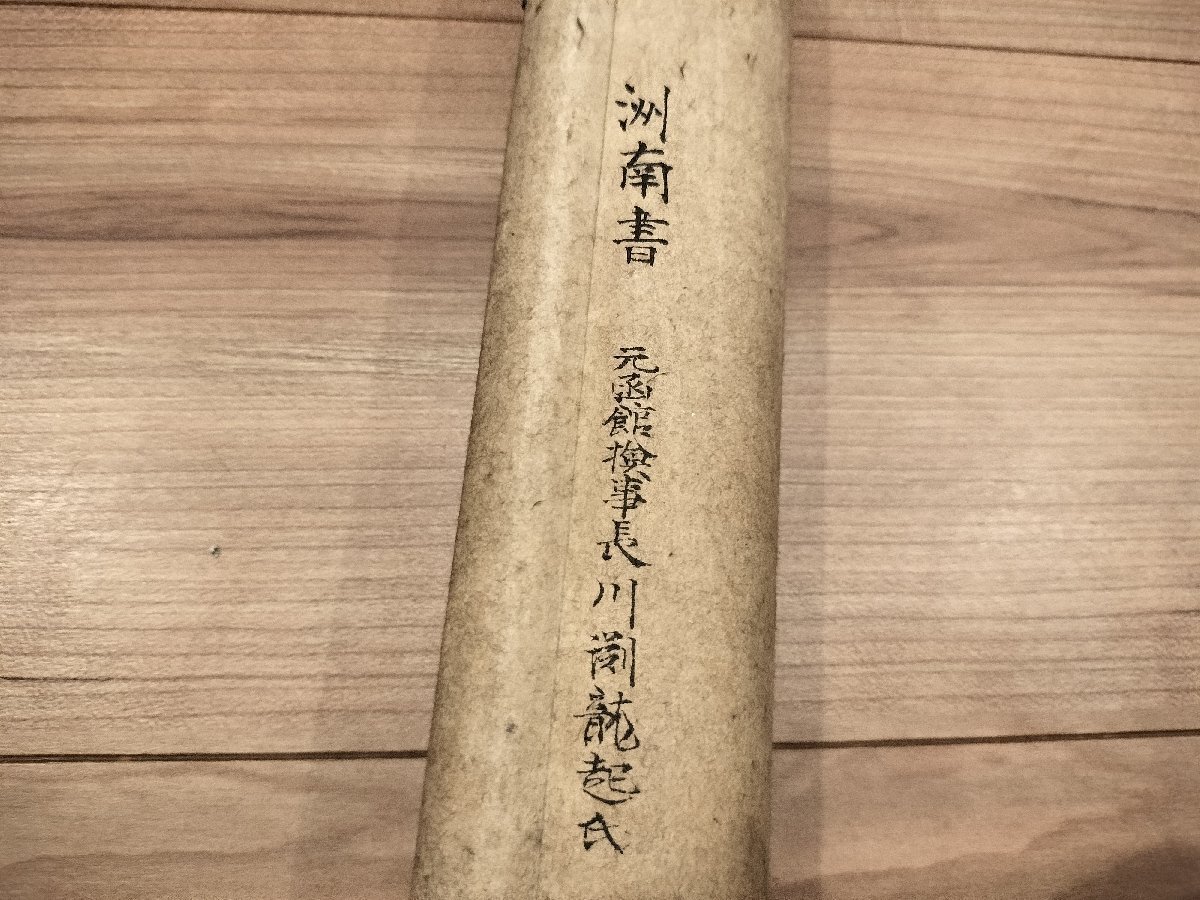 洲南書 元函館検事長川渕龍起氏